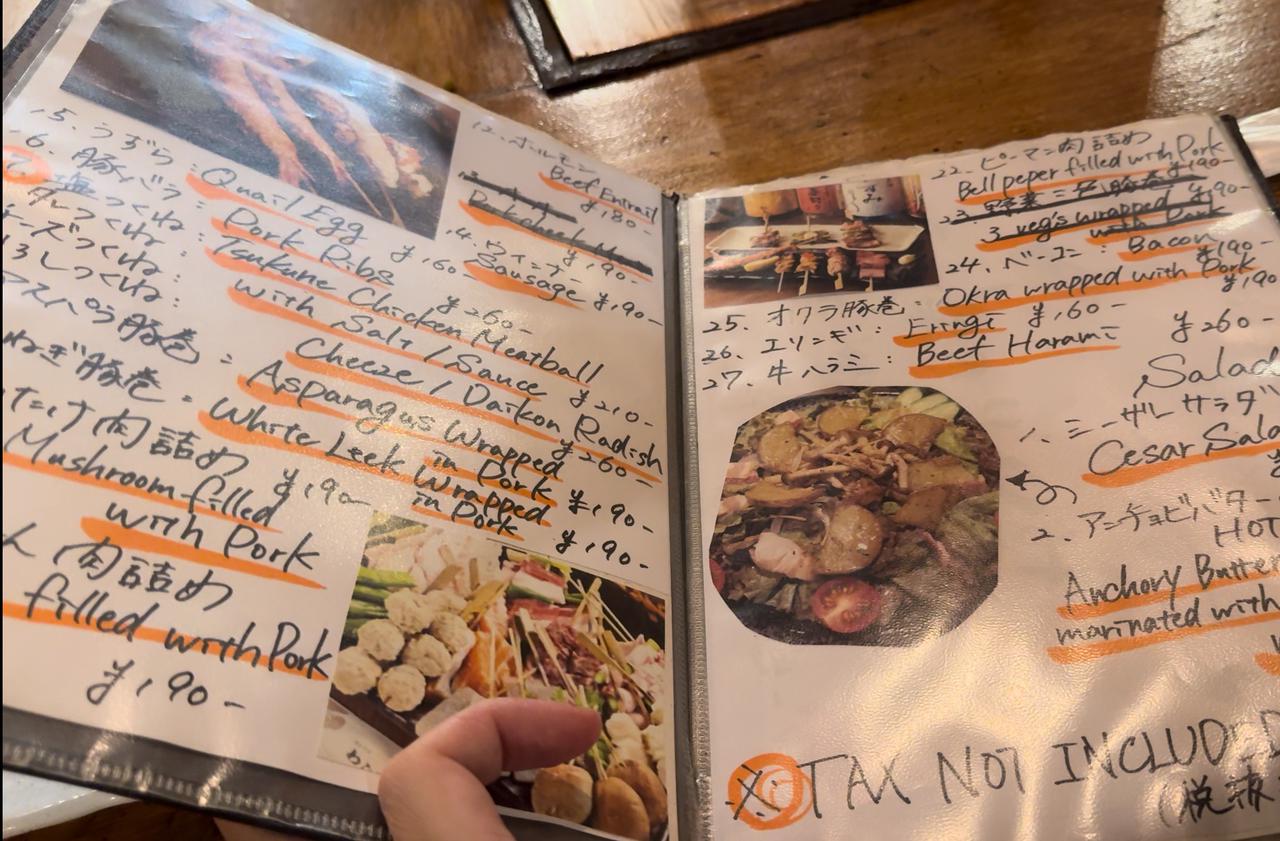 5. うずら : Quail Egg ¥160-
6. 豚バラ : Pork Ribs ¥260-
7. 塩つくね : Tsukune Chicken Meatball
タレつくね : with Salt/Sauce ¥210-
チーズつくね : Cheeze/Daikon Radish
おろしつくね : ¥260-
アスパラ豚巻 : Asparagus Wrapped
in Pork ¥190-
ねぎ豚巻 : White Leek Wrapped
in Pork ¥190-
たけ肉詰め ¥190-
Mushroom filled
with Pork
ん肉詰め
filled with Pork
¥190-
12. ホルモン
Beef Entrail
¥180-
¥190-
14. ウインナー
Sausage ¥190-
22. ピーマン肉詰め
Bell peper filled with Pork
¥190-
23. 野菜 豚巻 ¥190-
3 veg's wrapped
with Pork
24. ベーコン : Bacon ¥190-
25. オクラ豚巻 : Okra wrapped with Pork
¥190-
26. エリンギ : Eringi ¥160-
27. 牛ハラミ : Beef Harami ¥260-
Salad
1. シーザーサラダ
Cesar Sala
2. アンチョビバター
HOT
Anchory Butter
marinated with
※ TAX NOT INCLUDED
(税抜